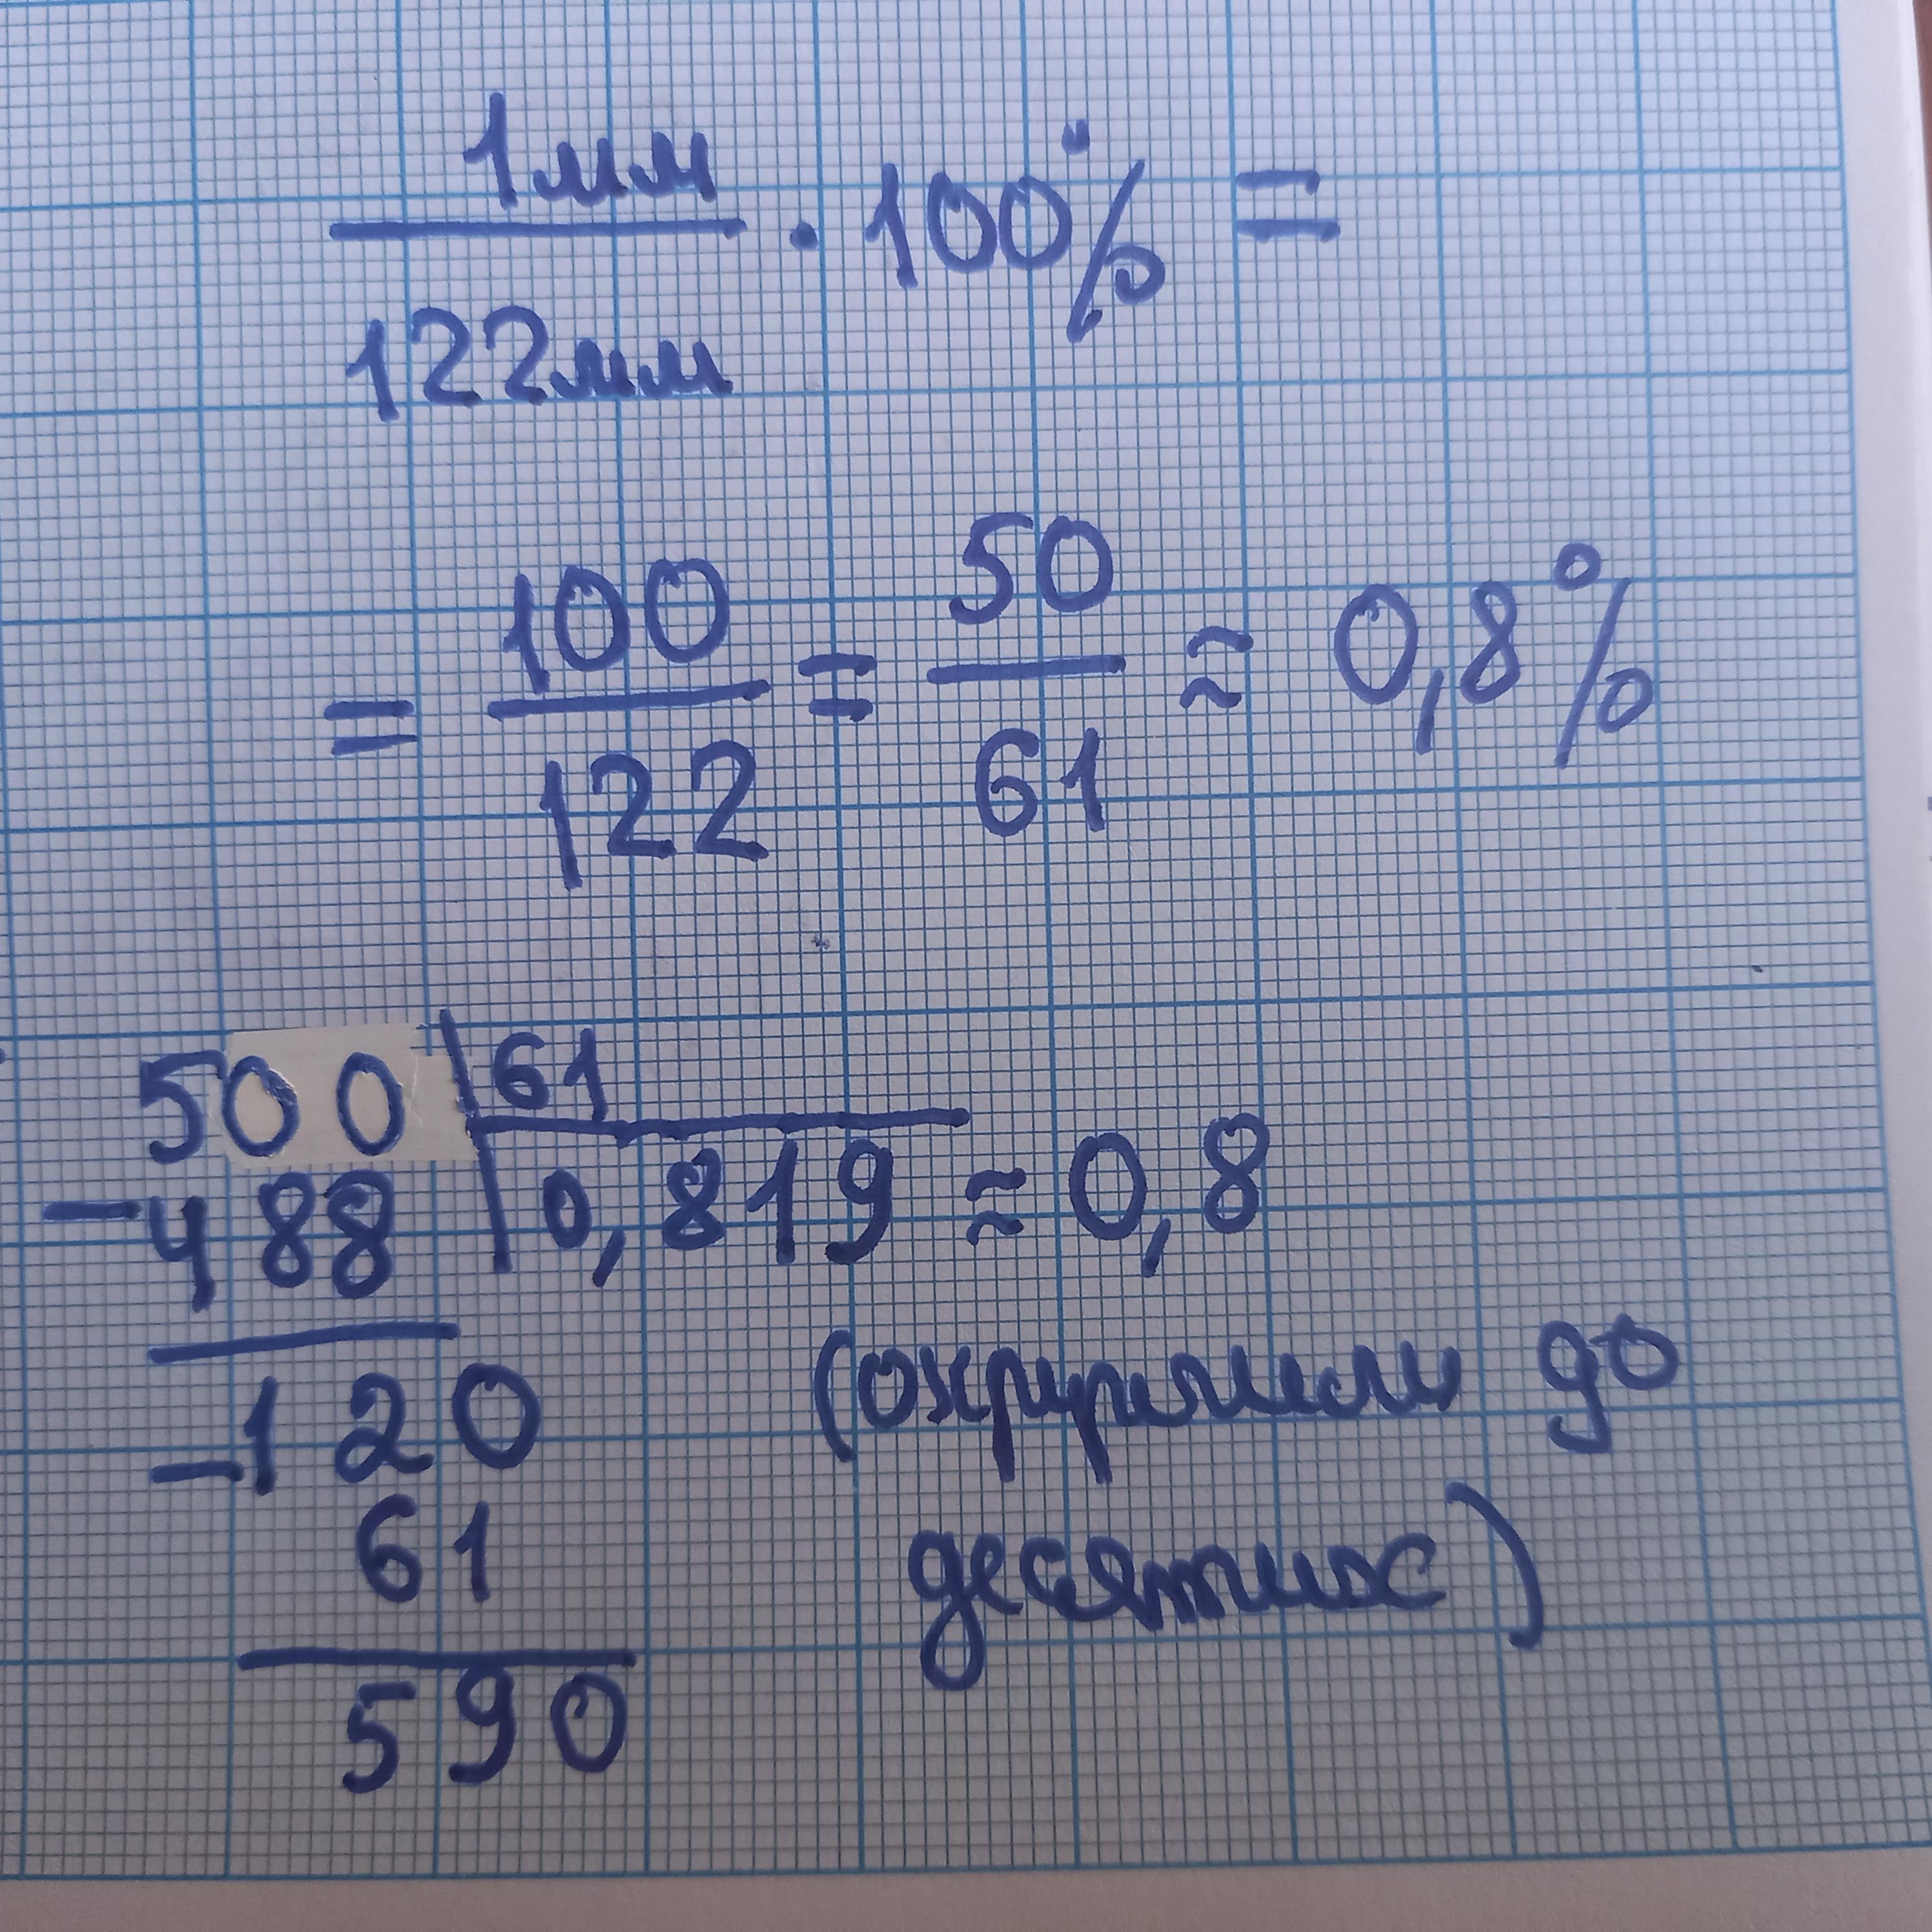 1мм
122мм · 100% =
= 100/122 = 50/61 ≈ 0,8%
500 | 61
- 488 | 0,819 ≈ 0,8
-120 (округлили до
61 десятых)
590